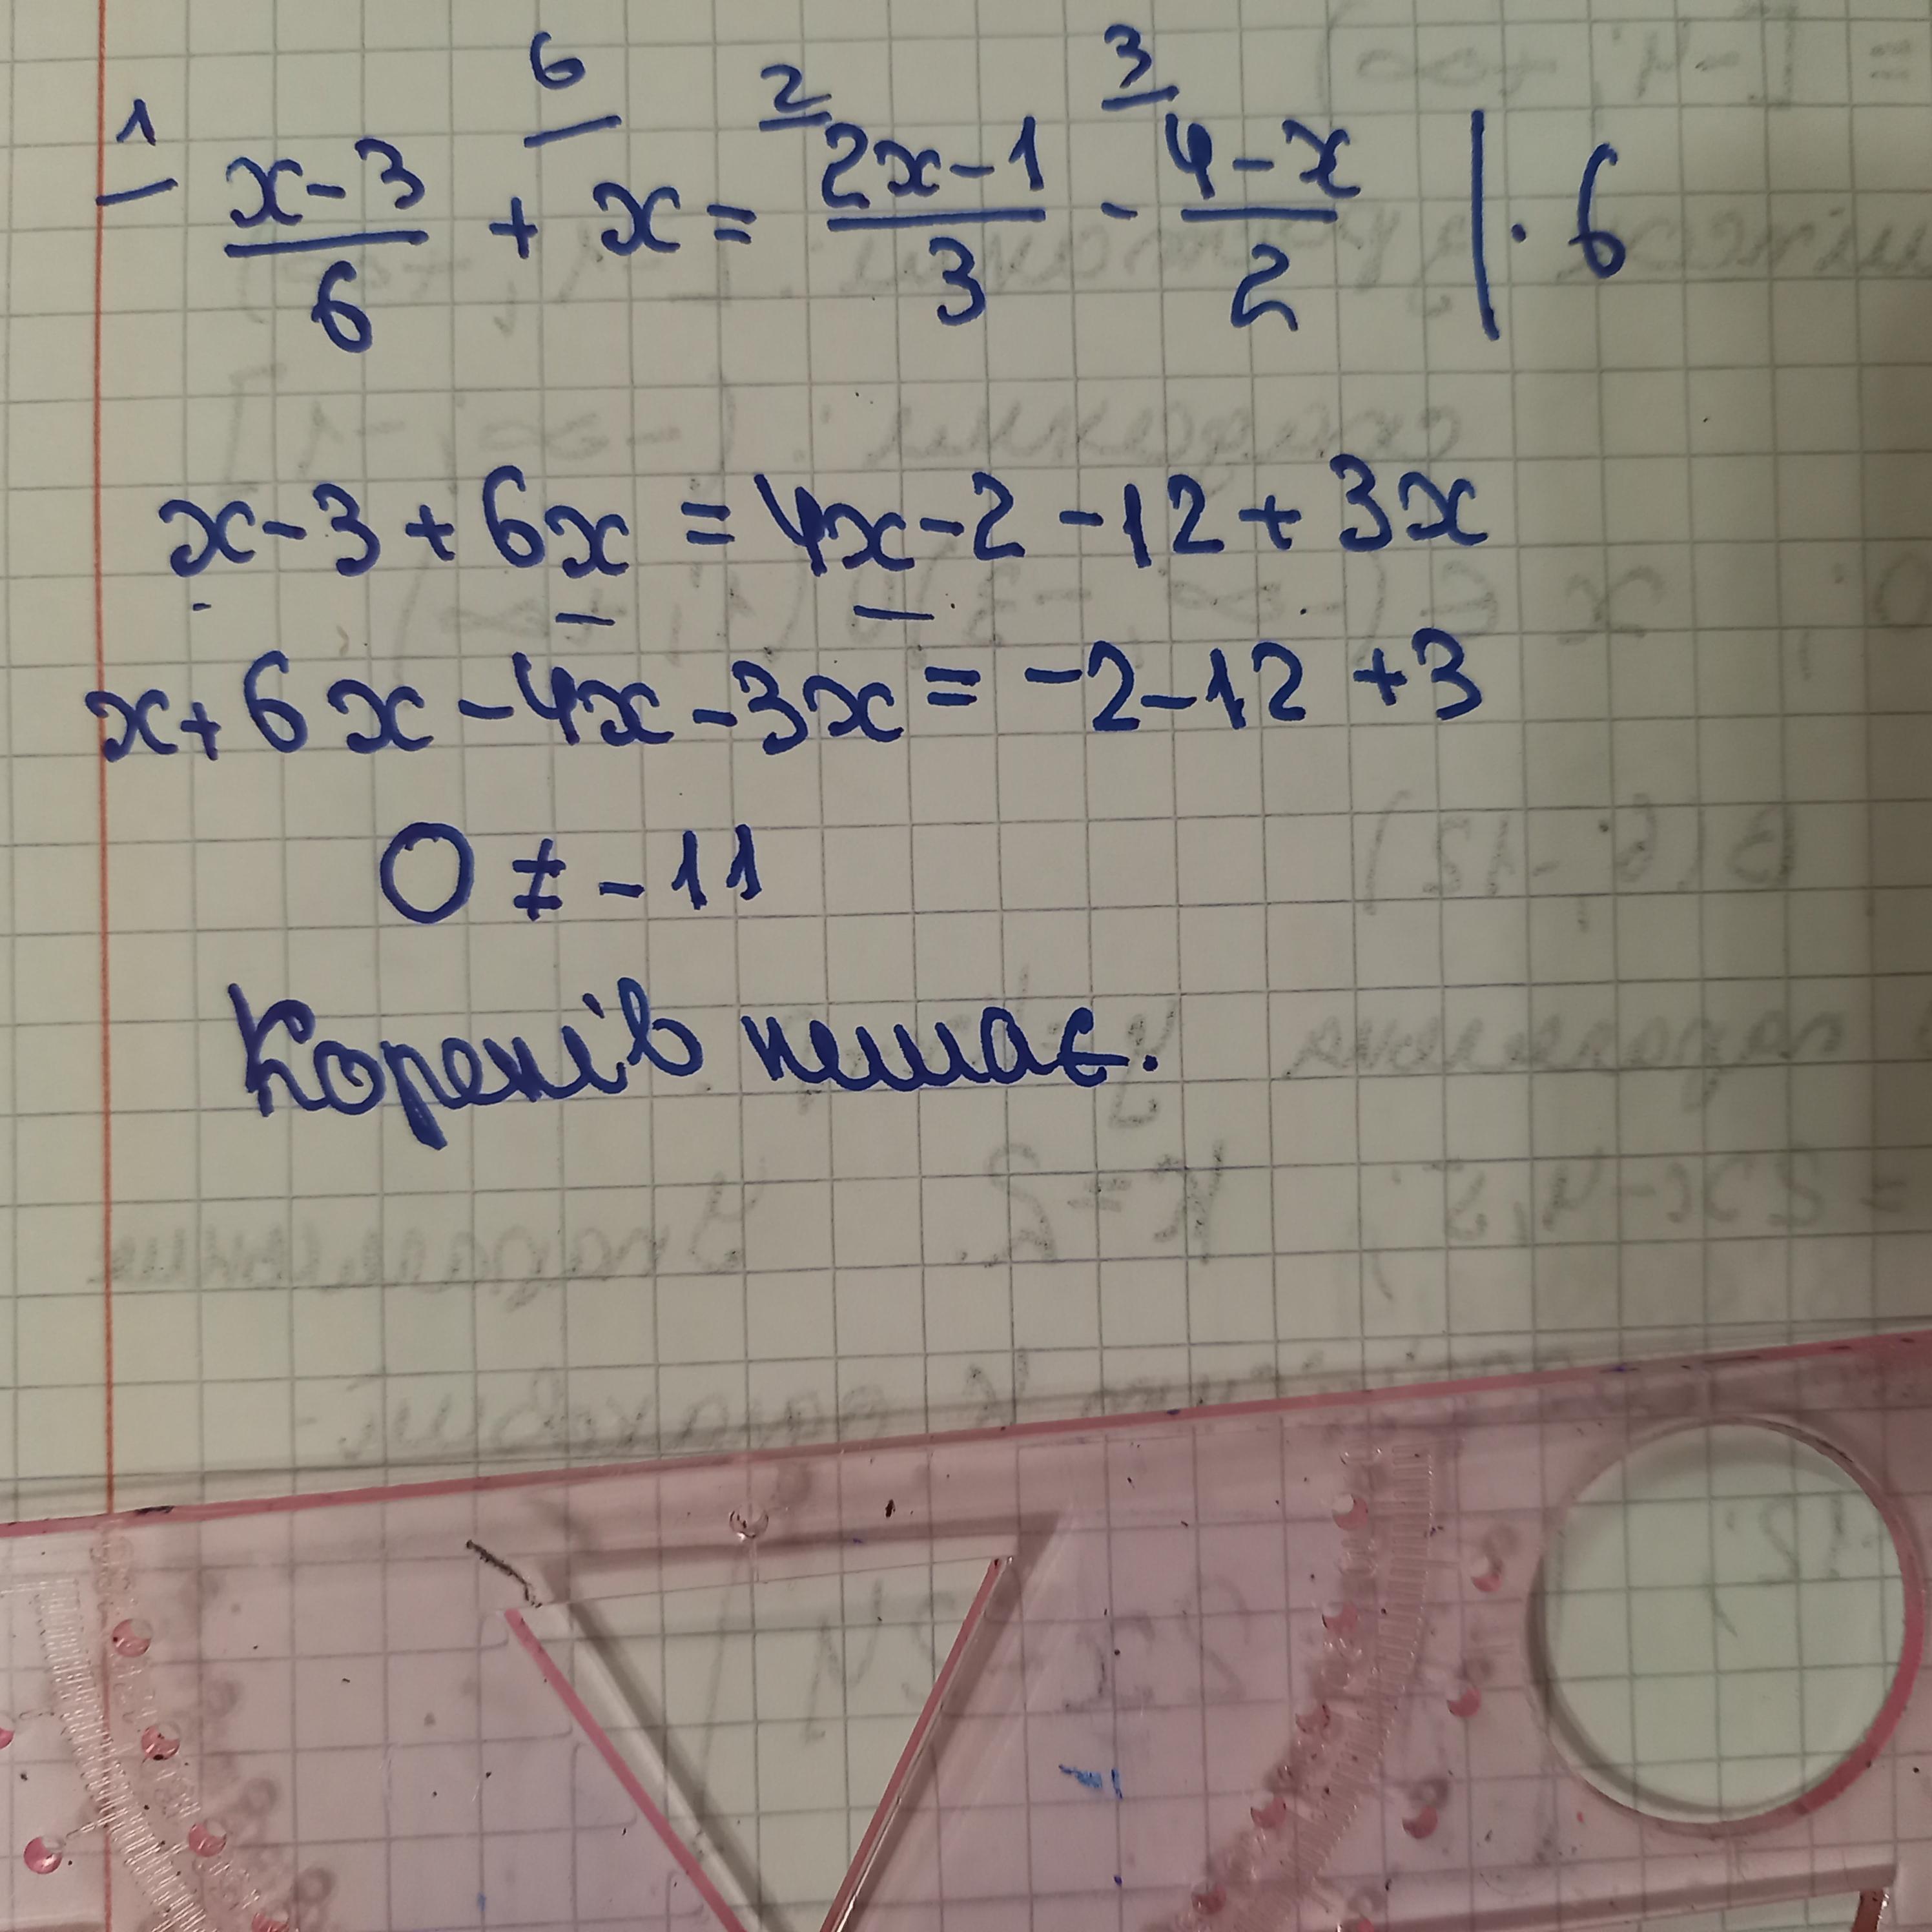 1 6 2 3
x-3/6 + x = 2x-1/3 - 4-x/2 | · 6
x-3+6x = 4x-2-12+3x
x+6x-4x-3x = -2-12+3
0 ≠ -11
Коренів немає.